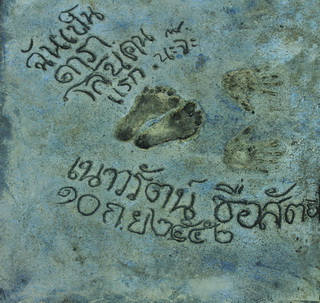 ฉันเป็น
ดารา
คน
แรก นะจ๊ะ
เนาวรัตน์ ซื่อสัตย์
๑๐ ก.ย ๒๕๕๖